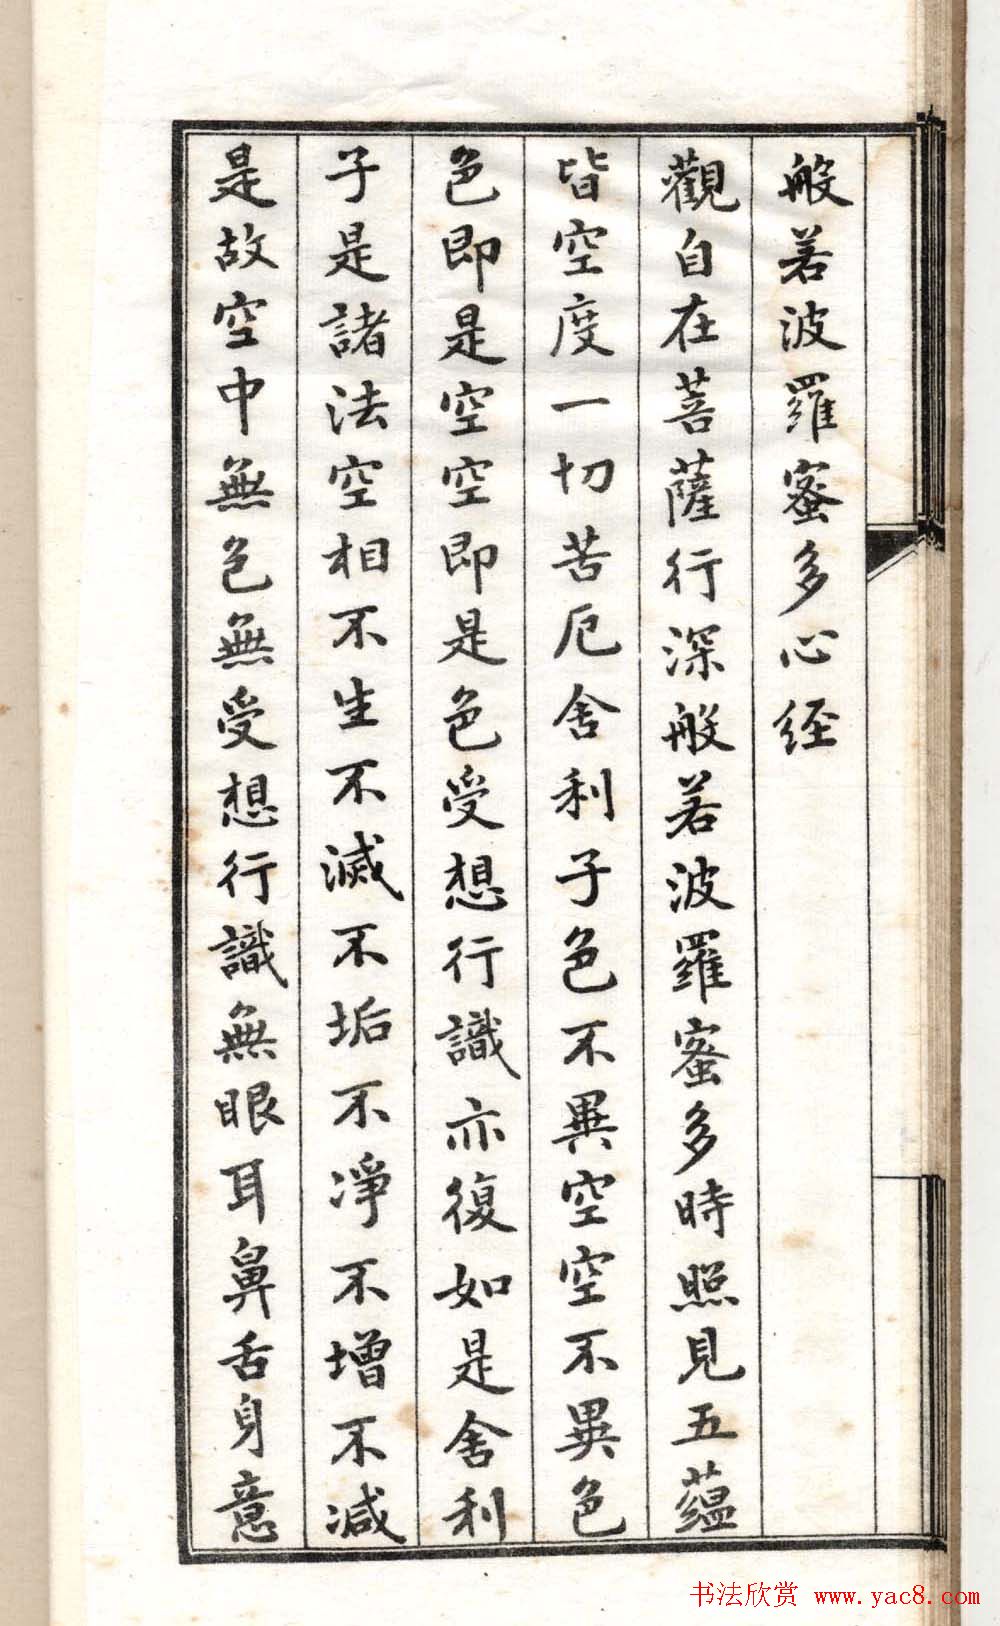 般若波羅蜜多心経
觀自在菩薩行深般若波羅蜜多時照見五蘊
皆空度一切苦厄舍利子色不異空空不異色
色即是空空即是色受想行識亦復如是舍利
子是諸法空相不生不滅不垢不淨不增不減
是故空中無色無受想行識無眼耳鼻舌身意
书法欣赏 www.yac8.com